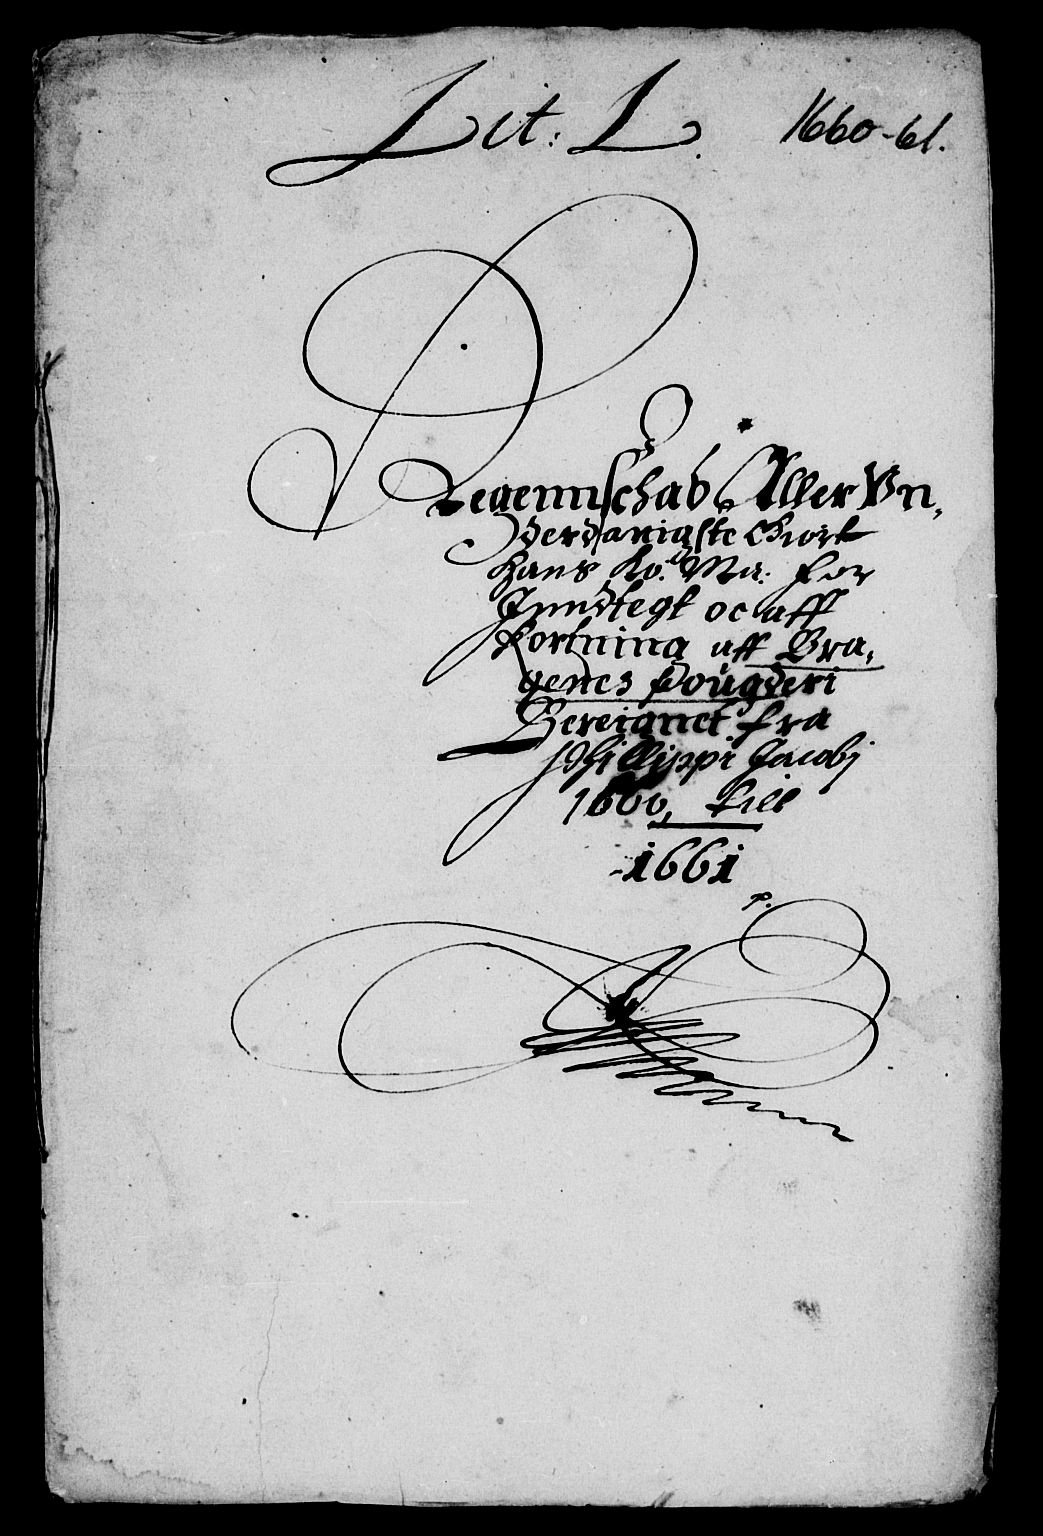 Lit: L. 1660-61.
Regennschab Aller Vn,
derdanigste Giort
hans Ko: Ma: for
Inndtegt oc aff
kortning aff Bra,
genes fougderi
Bereignet fra
Phillippi Jacobj
1660, till
1661